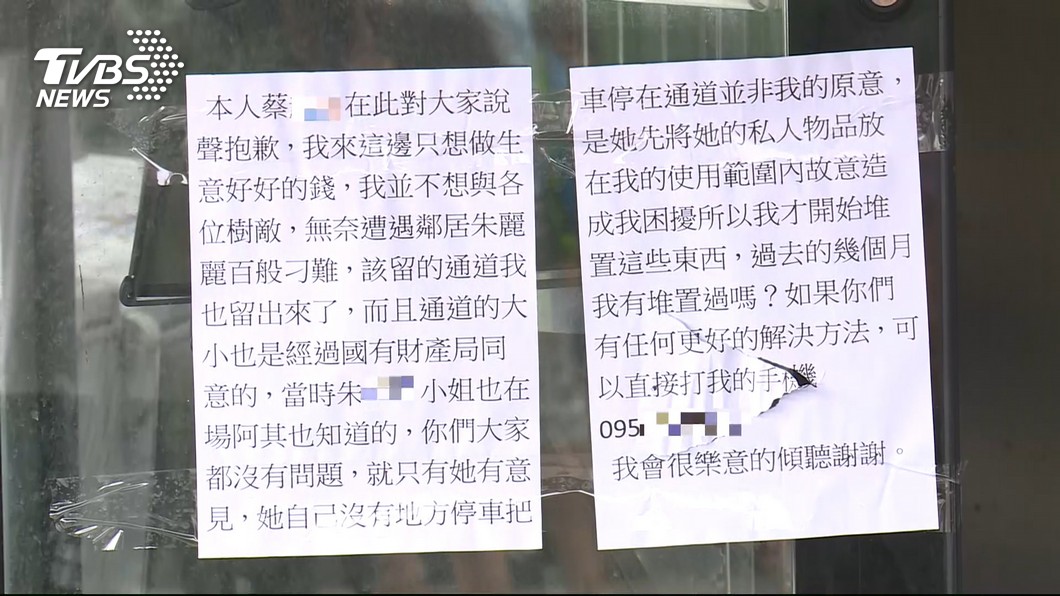 TVBS
NEWS
本人蔡 在此對大家說
聲抱歉，我來這邊只想做生
意好好的錢，我並不想與各
位樹敵，無奈遭遇鄰居朱麗
麗百般刁難，該留的通道我
也留出來了，而且通道的大
小也是經過國有財產局同
意的，當時朱 小姐也在
場阿其也知道的，你們大家
都沒有問題，就只有她有意
見，她自己沒有地方停車把
車停在通道並非我的原意，
是她先將她的私人物品放
在我的使用範圍內故意造
成我困擾所以我才開始堆
置這些東西，過去的幾個月
我有堆置過嗎？如果你們
有任何更好的解決方法，可
以直接打我的手機
095
我會很樂意的傾聽謝謝。